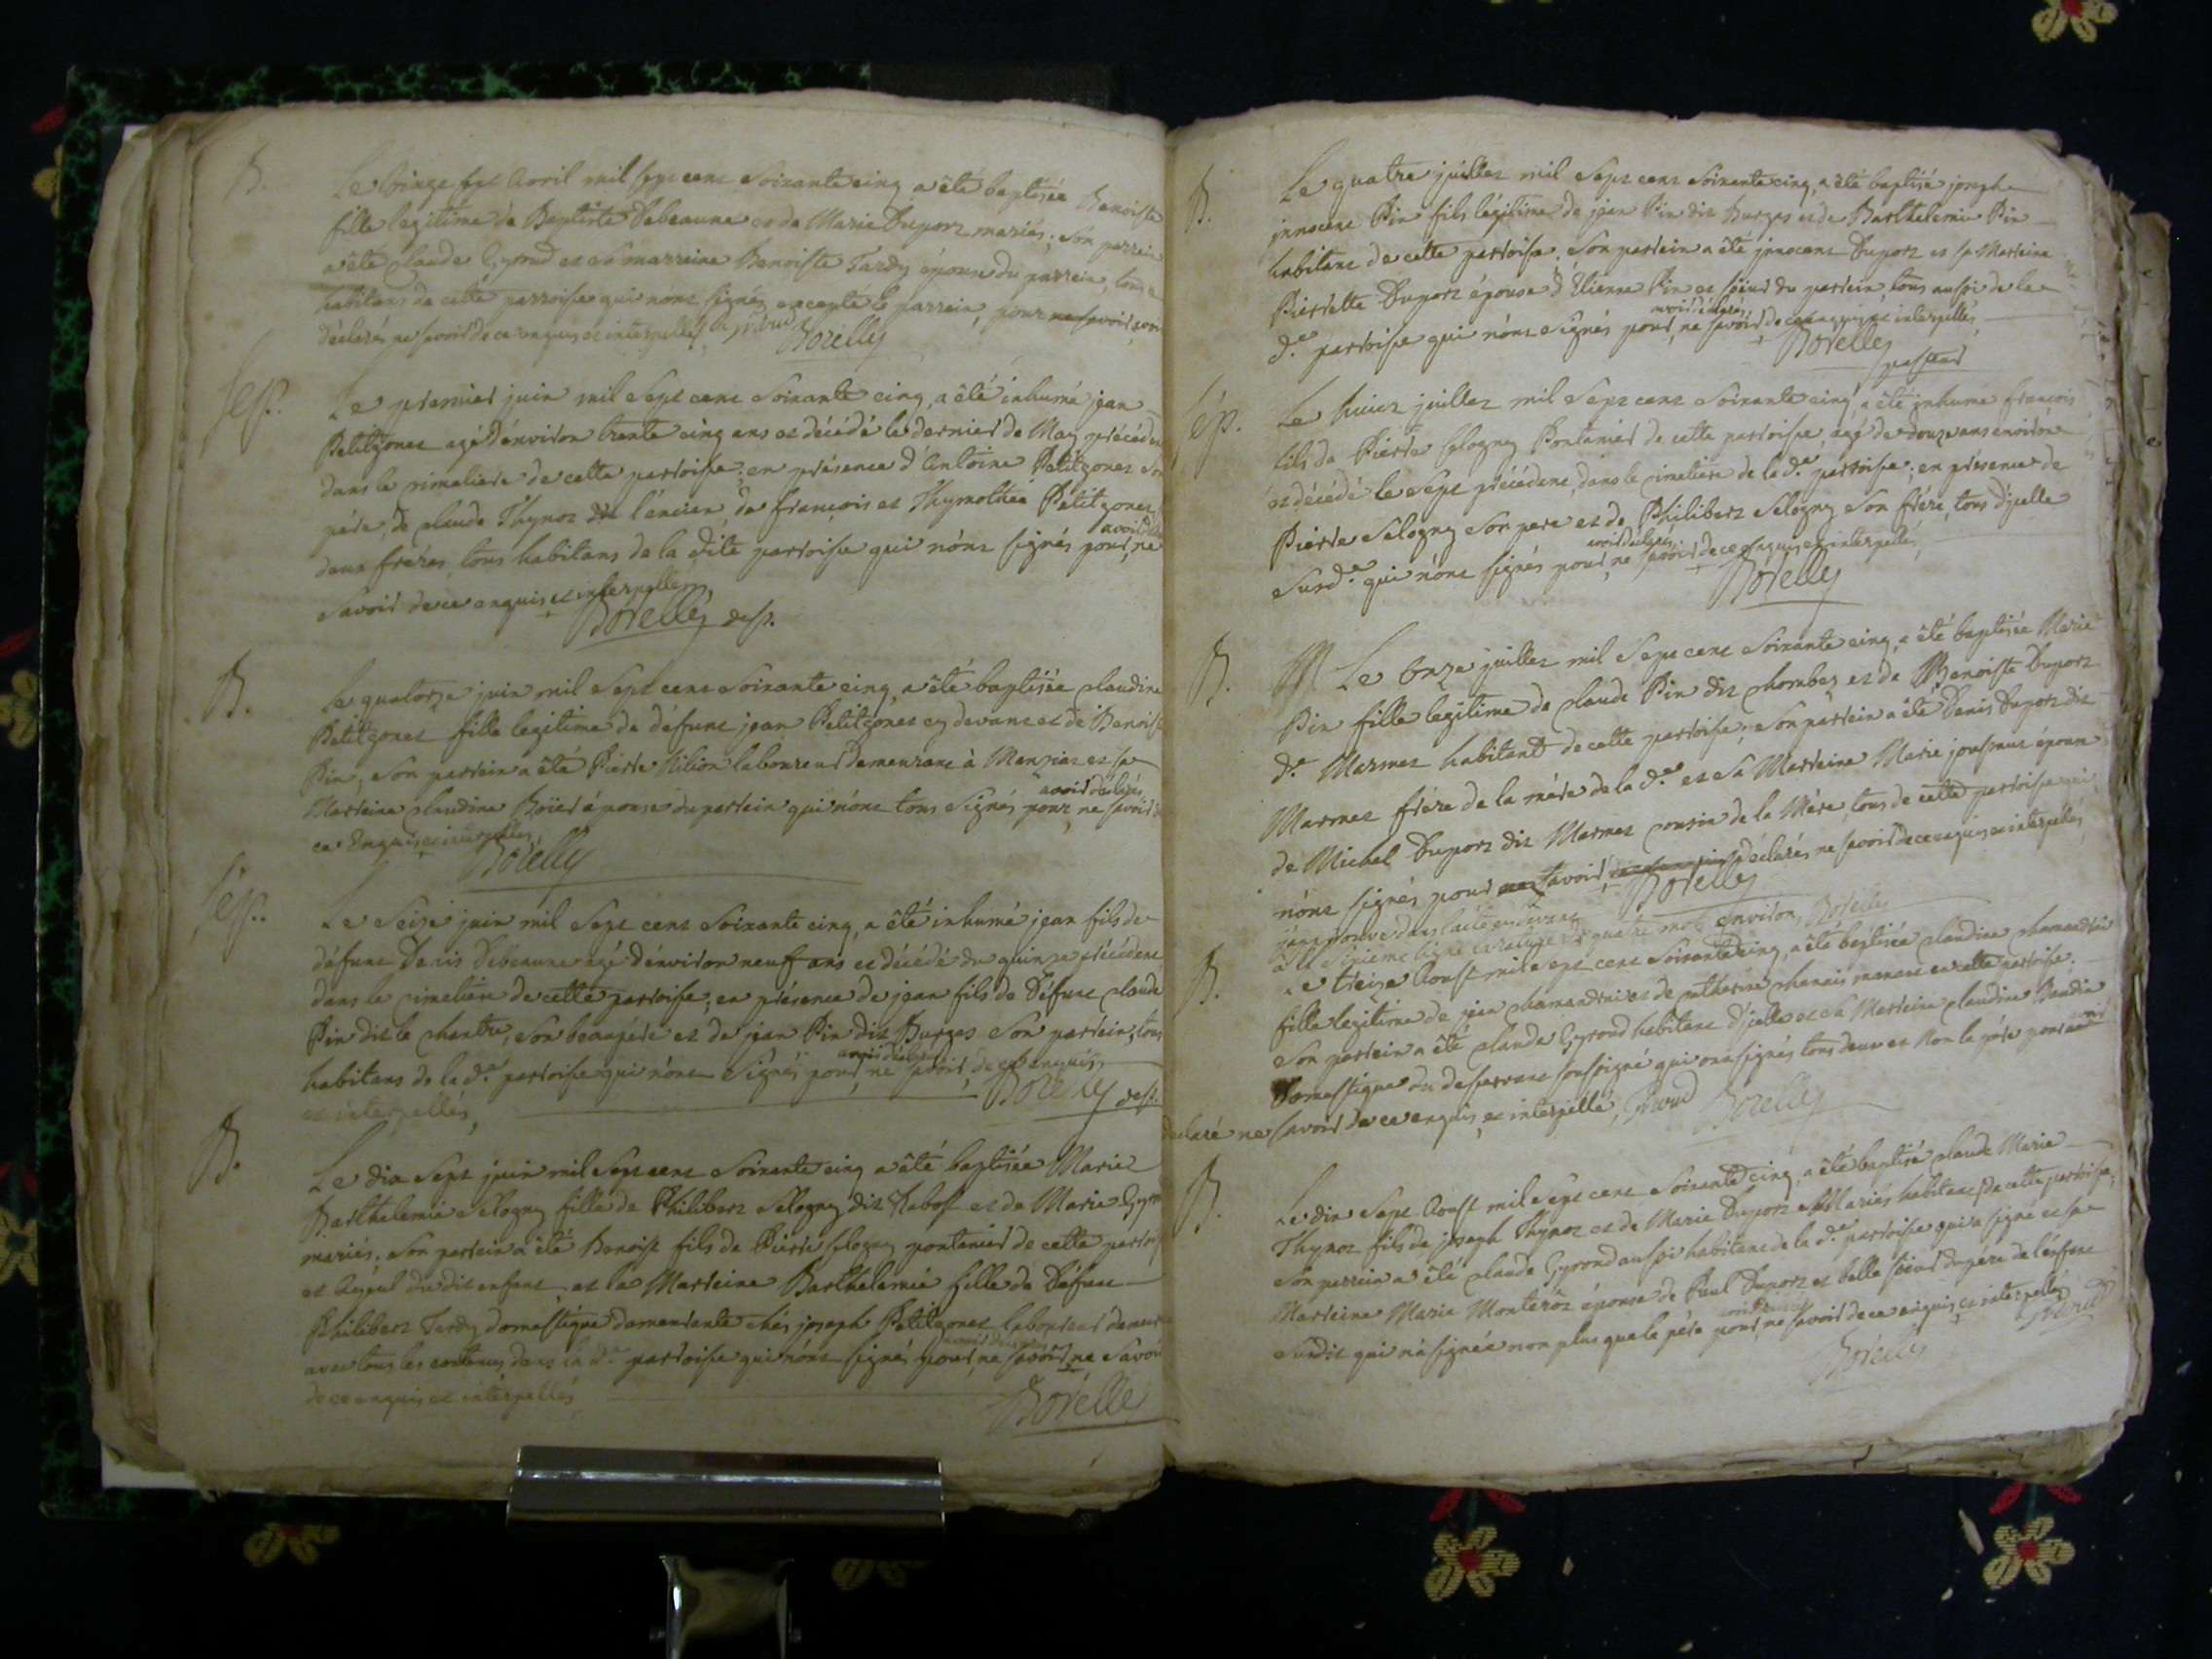 B. Le vingt sept Avril mil sept cent Soixante cinq a été baptisée Benoiste
fille legitime de Baptiste Debeaune et de Marie Duport mariés; Son parrein
a été claude Gyroud et sa marreine Benoiste Tardy épouse du parrein, tous
habitans de cette parroisse qui n'ont signés excepté le parrein, pour
déclarés ne savoir de ce enquis et interpellés Giroud
Borelly
sep. Le premier juin mil Sept cent Soixante cinq, a été inhumé jean
Petitgonet agé d'environ trente cinq ans et décédé le dernier de May précédent
dans le cimetiere de cette parroisse; en présence d'Antoine Petitgonet son
pére, de claude Thynot l'encien, de françois et Thymothée Petitgonet
deux fréres, tous habitans de la dite parroisse qui n'ont signés pour, avoir ne
Savoir de ce enquis et interpellés,
Borelly des.
B. Le quatorze juin mil Sept cent Soixante cinq, a été baptisée claudine
Petitgonet fille legitime de défunt jean Petitgonet cy devant et de Benoiste
Pin; Son parrein a été Pierre laboureur demeurant à et sa
Marreine claudine épouse du parrein qui n'ont tous Signés pour, avoir déclarés ne savoir de
ce Enquis et interpellés,
Borelly
sép. Le Seise juin mil Sept cent Soixante cinq, a été inhumé jean fils de
défunt Denis Debeaune agé d'environ neuf ans et décédé du quinze précédent
dans le cimetiere de cette parroisse; en présence de jean fils de Défunt claude
Pin dit le chantre, Son beaupére et de jean Pin dit Burgas Son parrein, tous
habitans de la d.e parroisse qui n'ont Signés pour, avoir déclarés ne savoir, de ce enquis
et interpellés,
Borelly des.
B. Le dix Sept juin mil Sept cent Soixante cinq a été baptisée Marie
Barthelemie Sologny fille de Philibert Sologny dit Rabot et de Marie
mariés; Son parrein a été Benoist fils de Pierre Sologny pontanier de cette parroisse
et Ayeul du dit enfant, et la Marreine Barthelemie fille de Défunt
Philibert Tardy domestique demeurante chés joseph Petitgonet laboureur
avec tous les contenus dans la d.e parroisse qui n'ont signés pour, ne savoir ne Savoir
de ce enquis et interpellés
Borelly
B. Le quatre juillet mil Sept cent Soixante cinq, a été baptisé joseph
innocent Pin fils légitime de jean Pin dit Burgas et de Barthelemie Pin
habitans de cette parroisse; Son parrein a été jnnocent Duport et sa Marreine
Pierrette Duport épouse d'Etienne Pin et soeur du parrein, tous aussi de la
d.e parroisse qui n'ont Signés pour, avoir déclarés ne savoir, de ce enquis et interpellés,
Borelly
Le huict juillet mil Sept cent Soixante cinq, a été jnhumé francois
sép. fils de Pierre Sologny Pontanier de cette parroisse agé de douze ans environ
et décédé le Sept précédent, dans le cimetiere de la d.e parroisse; en présence de
Pierre Sologny Son pere et de Philibert Sologny Son frére, tous d'jcelle
Susd.e qui n'ont signés pour, avoir déclarés ne savoir de ce enquis et interpellés,
Borelly
B. Le Onze juillet mil Sept cent Soixante cinq, a été baptisée Marie
Pin fille legitime de claude Pin dit chombet et de Benoiste Duport
d.e Marmet habitant de cette parroisse; Son parrein a été Denis Duport dit
Marmet frére de la mére de la d.e et sa Marreine Marie épouse
de Michel Duport dit Marmet cousin de la Mére, tous de cette parroisse qui
n'ont signés pour avoir déclarés ne savoir de ce enquis et interpellés
Borelly
j'approuve dans l'acte cydevant
à la Sixieme ligne la rature de quatre mots environ, Borelly
B. Le treize Aoust mil Sept cent Soixante cinq, a été baptisée claudine
fille legitime de jean et de catherine manant en cette parroisse.
Son parrein a été claude Gyroud habitant d'jcelle et sa Marreine claudine Baudin
Domestique du desservant soussigné qui ont signés tous deux et Non le pére pour avoir
déclaré ne savoir de ce enquis, et interpellé, Giroud Borelly
B. Le dix Sept Aoust mil Sept cent Soixante cinq, a été baptisé claude Marie
Thynot fils de joseph Thynot et de Marie Duport Mariés habitans de cette parroisse;
Son parrein a été claude Gyroud aussi habitant de la d.e parroisse qui a signé et sa
Marreine Marie Monterôt épouse de Paul Duport et belle soeur du pére de l'enfant
Susdit qui n'a signée non plus que le pére pour, ne savoir de ce enquis, et interpellés
Giroud
Borelly